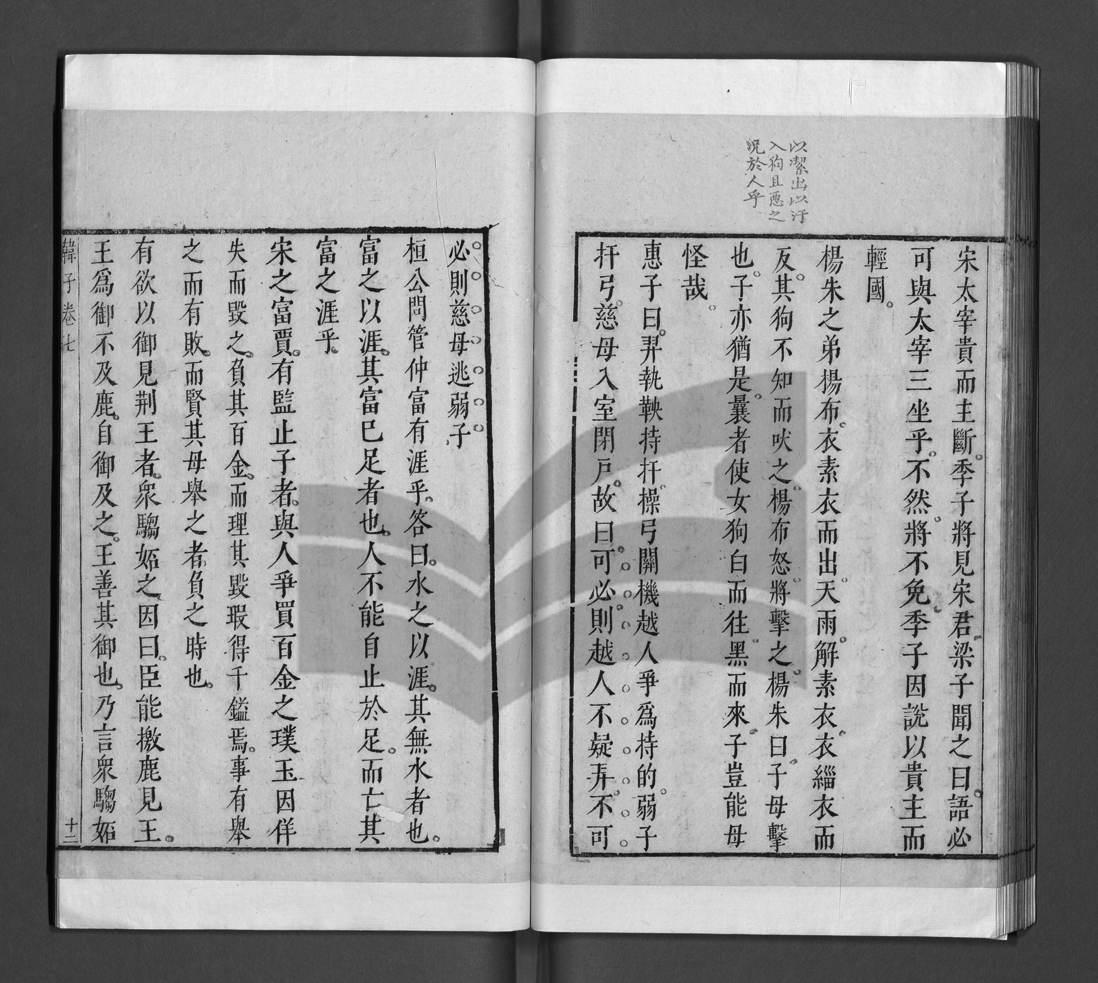 以潔出以汙
入狗且惡之
況於人乎
宋太宰貴而主斷。季子將見宋君。梁子聞之曰。語必
可與太宰三坐乎。不然。將不免。季子因說以貴主而
輕國。
楊朱之弟楊布。衣素衣而出。天雨。解素衣。衣緇衣而
反。其狗不知而吠之。楊布怒。將擊之。楊朱曰。子毋擊
也。子亦猶是。曩者使女狗白而往。黑而來。子豈能毋
怪哉。
惠子曰。羿執鞅持扞。操弓關機。越人爭爲持的。弱子
扞弓。慈母入室閉戶。故曰。可必。則越人不疑羿。不可
必。則慈母逃弱子
桓公問管仲。富有涯乎。答曰。水之以涯。其無水者也。
富之以涯。其富已足者也。人不能自止於足。而亡其
富之涯乎。
宋之富賈。有監止子者。與人爭買百金之璞玉。因佯
失而毀之。負其百金。而理其毀瑕。得千鎰焉。事有舉
之而有敗。而賢其毋舉之者。負之時也。
有欲以御見荆王者。衆騶妬之。因曰。臣能撽鹿見王。
王爲御不及鹿。自御及之。王善其御也。乃言衆騶妬
韓子卷七
十二